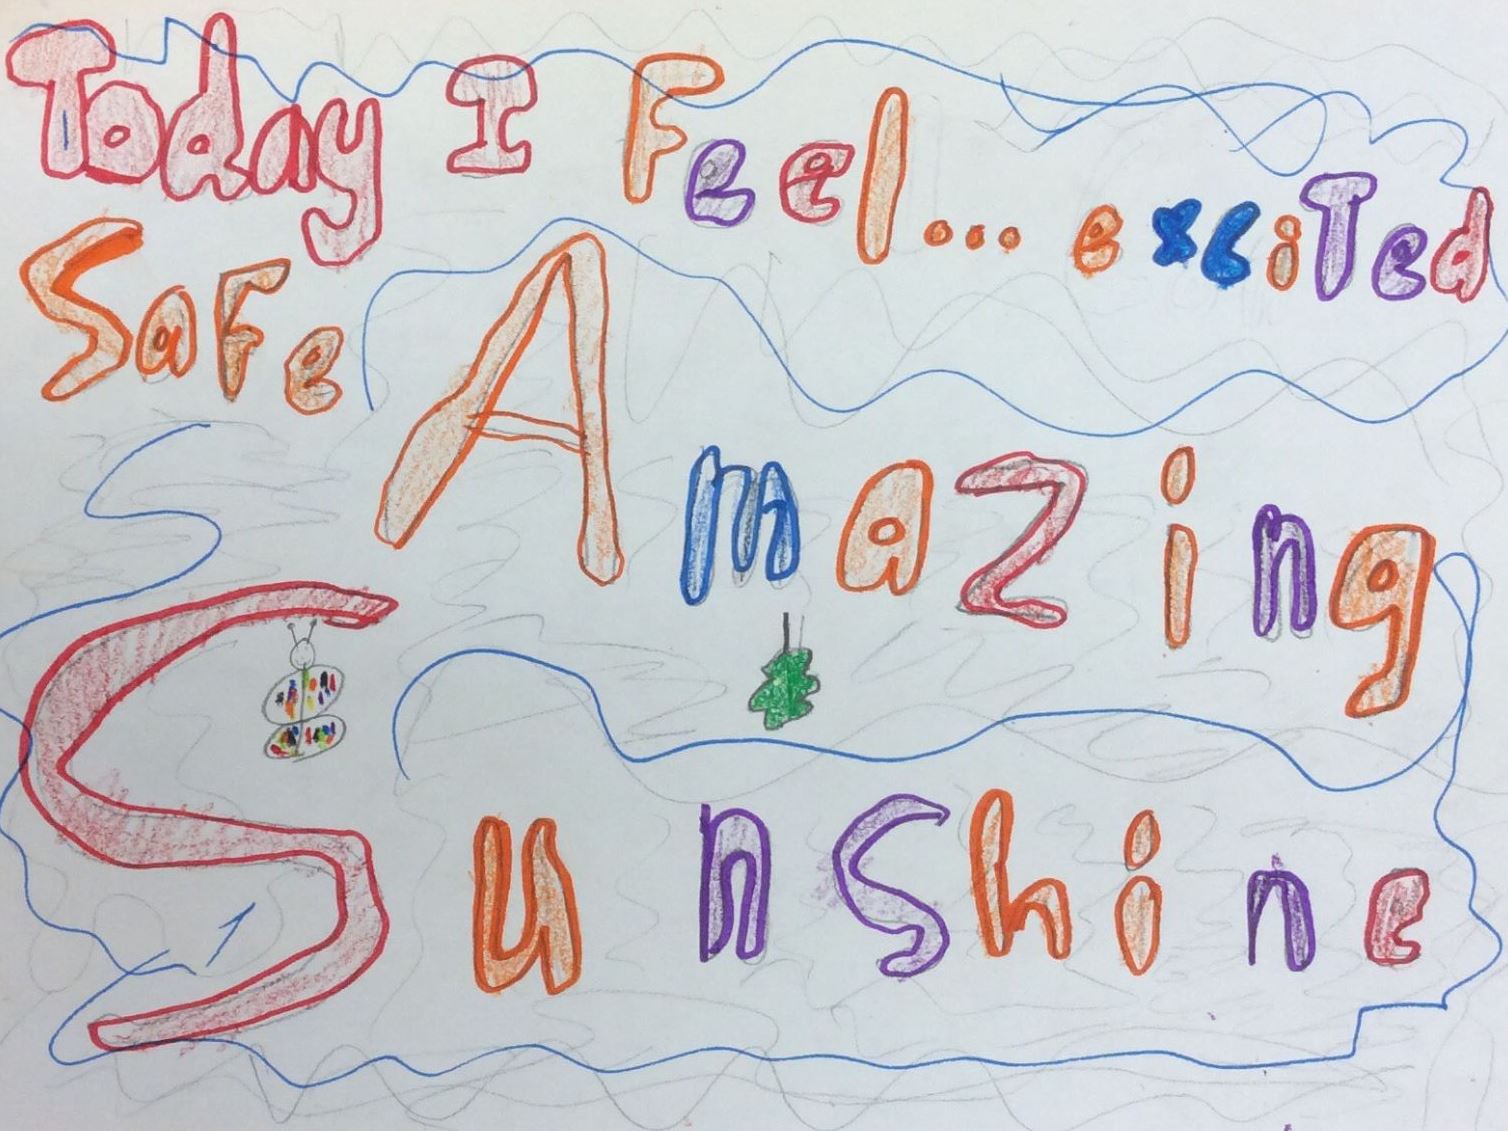 Today I Feel... exciTed
SaFe Amazing
Sunshine